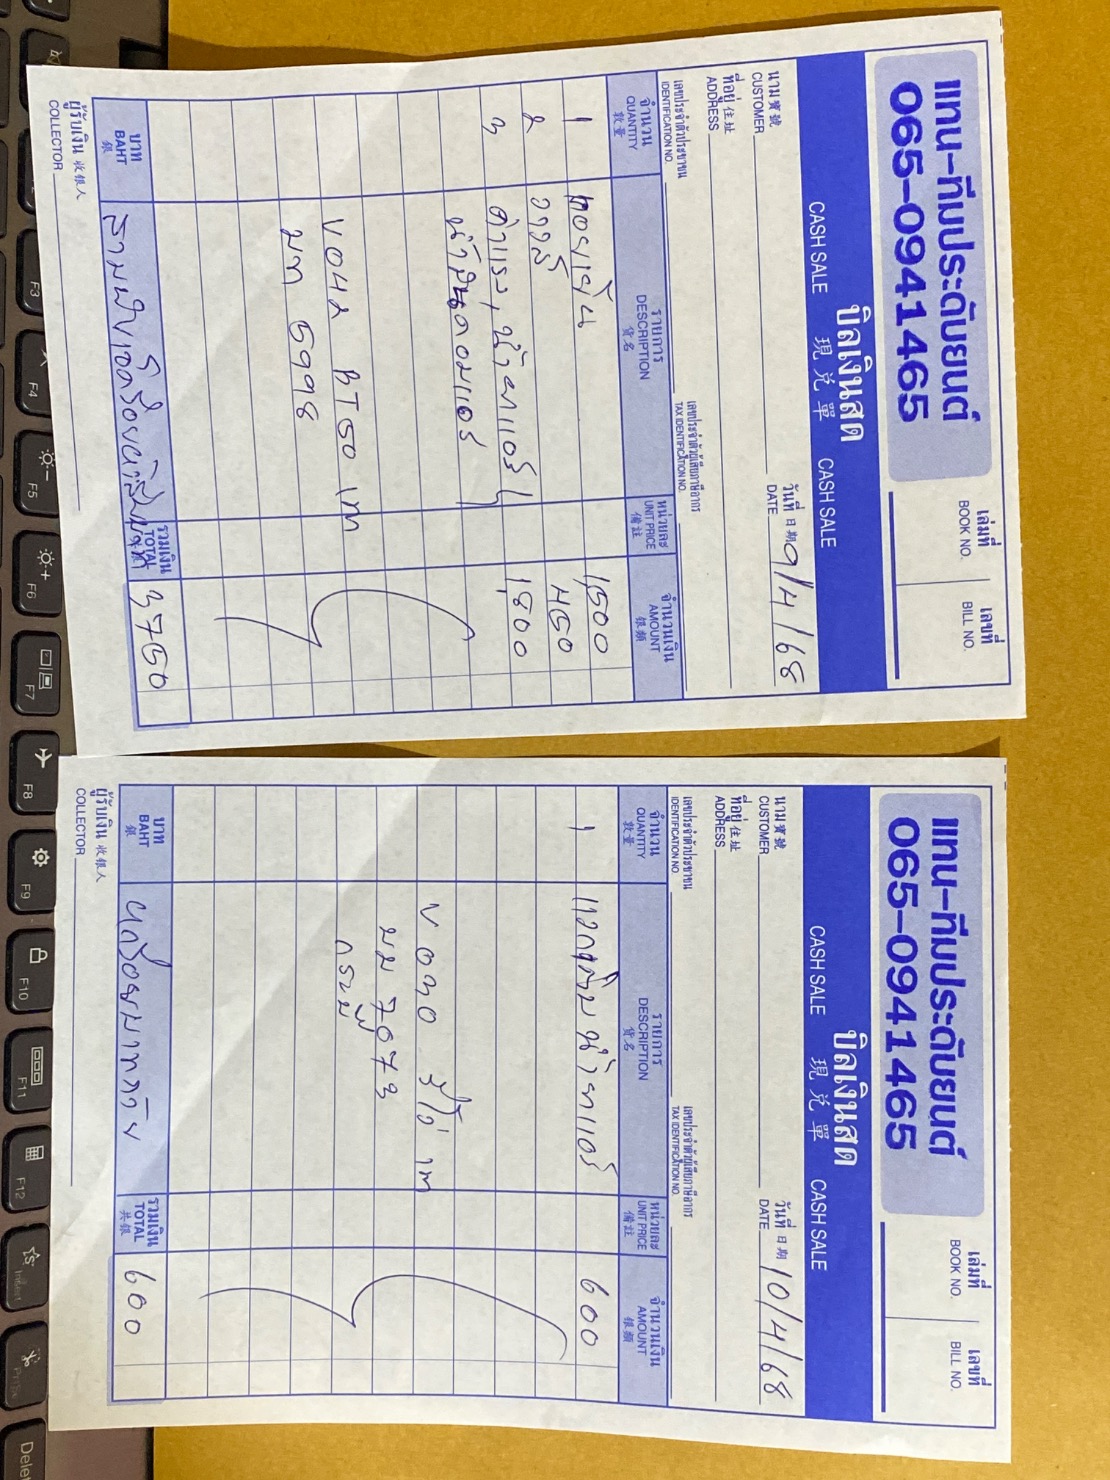 แทน-ทีมประดับยนต์
065-0941465
เล่มที่
BOOK NO.
เลขที่
BILL NO.
บิลเงินสด
CASH SALE 現兌單 CASH SALE
นาม寶號
CUSTOMER
วันที่日期
DATE 9/4/68
ที่อยู่住址
ADDRESS
เลขประจำตัวประชาชน
IDENTIFICATION NO.
เลขประจำตัวผู้เสียภาษีอากร
TAX IDENTIFICATION NO.
จำนวน รายการ หน่วยละ จำนวนเงิน
QUANTITY DESCRIPTION UNIT PRICE AMOUNT
數量 貨名 備註 銀額
1 คอยเย็น 1,500
2 วาวล์ 450
3 ค่าแรง, น้ำยาแอร์ 1,800
น้ำมันคอมแอร์
V042 BT50 เทา
มท 5998
บาท
BAHT
銀
สามพันเจ็ดร้อยห้าสิบบาท
รวมเงิน
TOTAL
3750
ผู้รับเงิน 收銀人
COLLECTOR
แทน-ทีมประดับยนต์
065-0941465
เล่มที่
BOOK NO.
เลขที่
BILL NO.
บิลเงินสด
CASH SALE 現兌單 CASH SALE
นาม寶號
CUSTOMER
วันที่日期
DATE 10/4/68
ที่อยู่住址
ADDRESS
เลขประจำตัวประชาชน
IDENTIFICATION NO.
เลขประจำตัวผู้เสียภาษีอากร
TAX IDENTIFICATION NO.
จำนวน รายการ หน่วยละ จำนวนเงิน
QUANTITY DESCRIPTION UNIT PRICE AMOUNT
數量 貨名 備註 銀額
1 น้ำยาแอร์ 600
V030 รีโว่ เทา
7073
บาท
BAHT
銀
หกร้อยบาทถ้วน
รวมเงิน
TOTAL
共銀
600
ผู้รับเงิน 收銀人
COLLECTOR
F3
F4
F5
F6
F7
F8
F9
F10
F11
F12
Insert
PrtSc
Delete